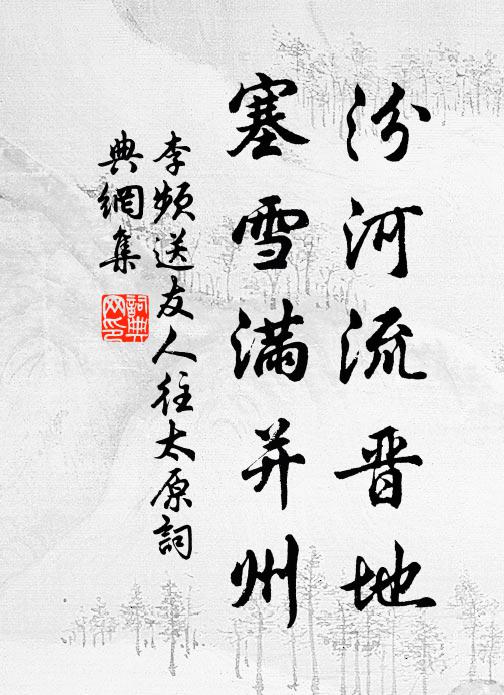 汾河流晋地
塞雪满并州
李频送友人往太原詞
典網集
詞典
网印